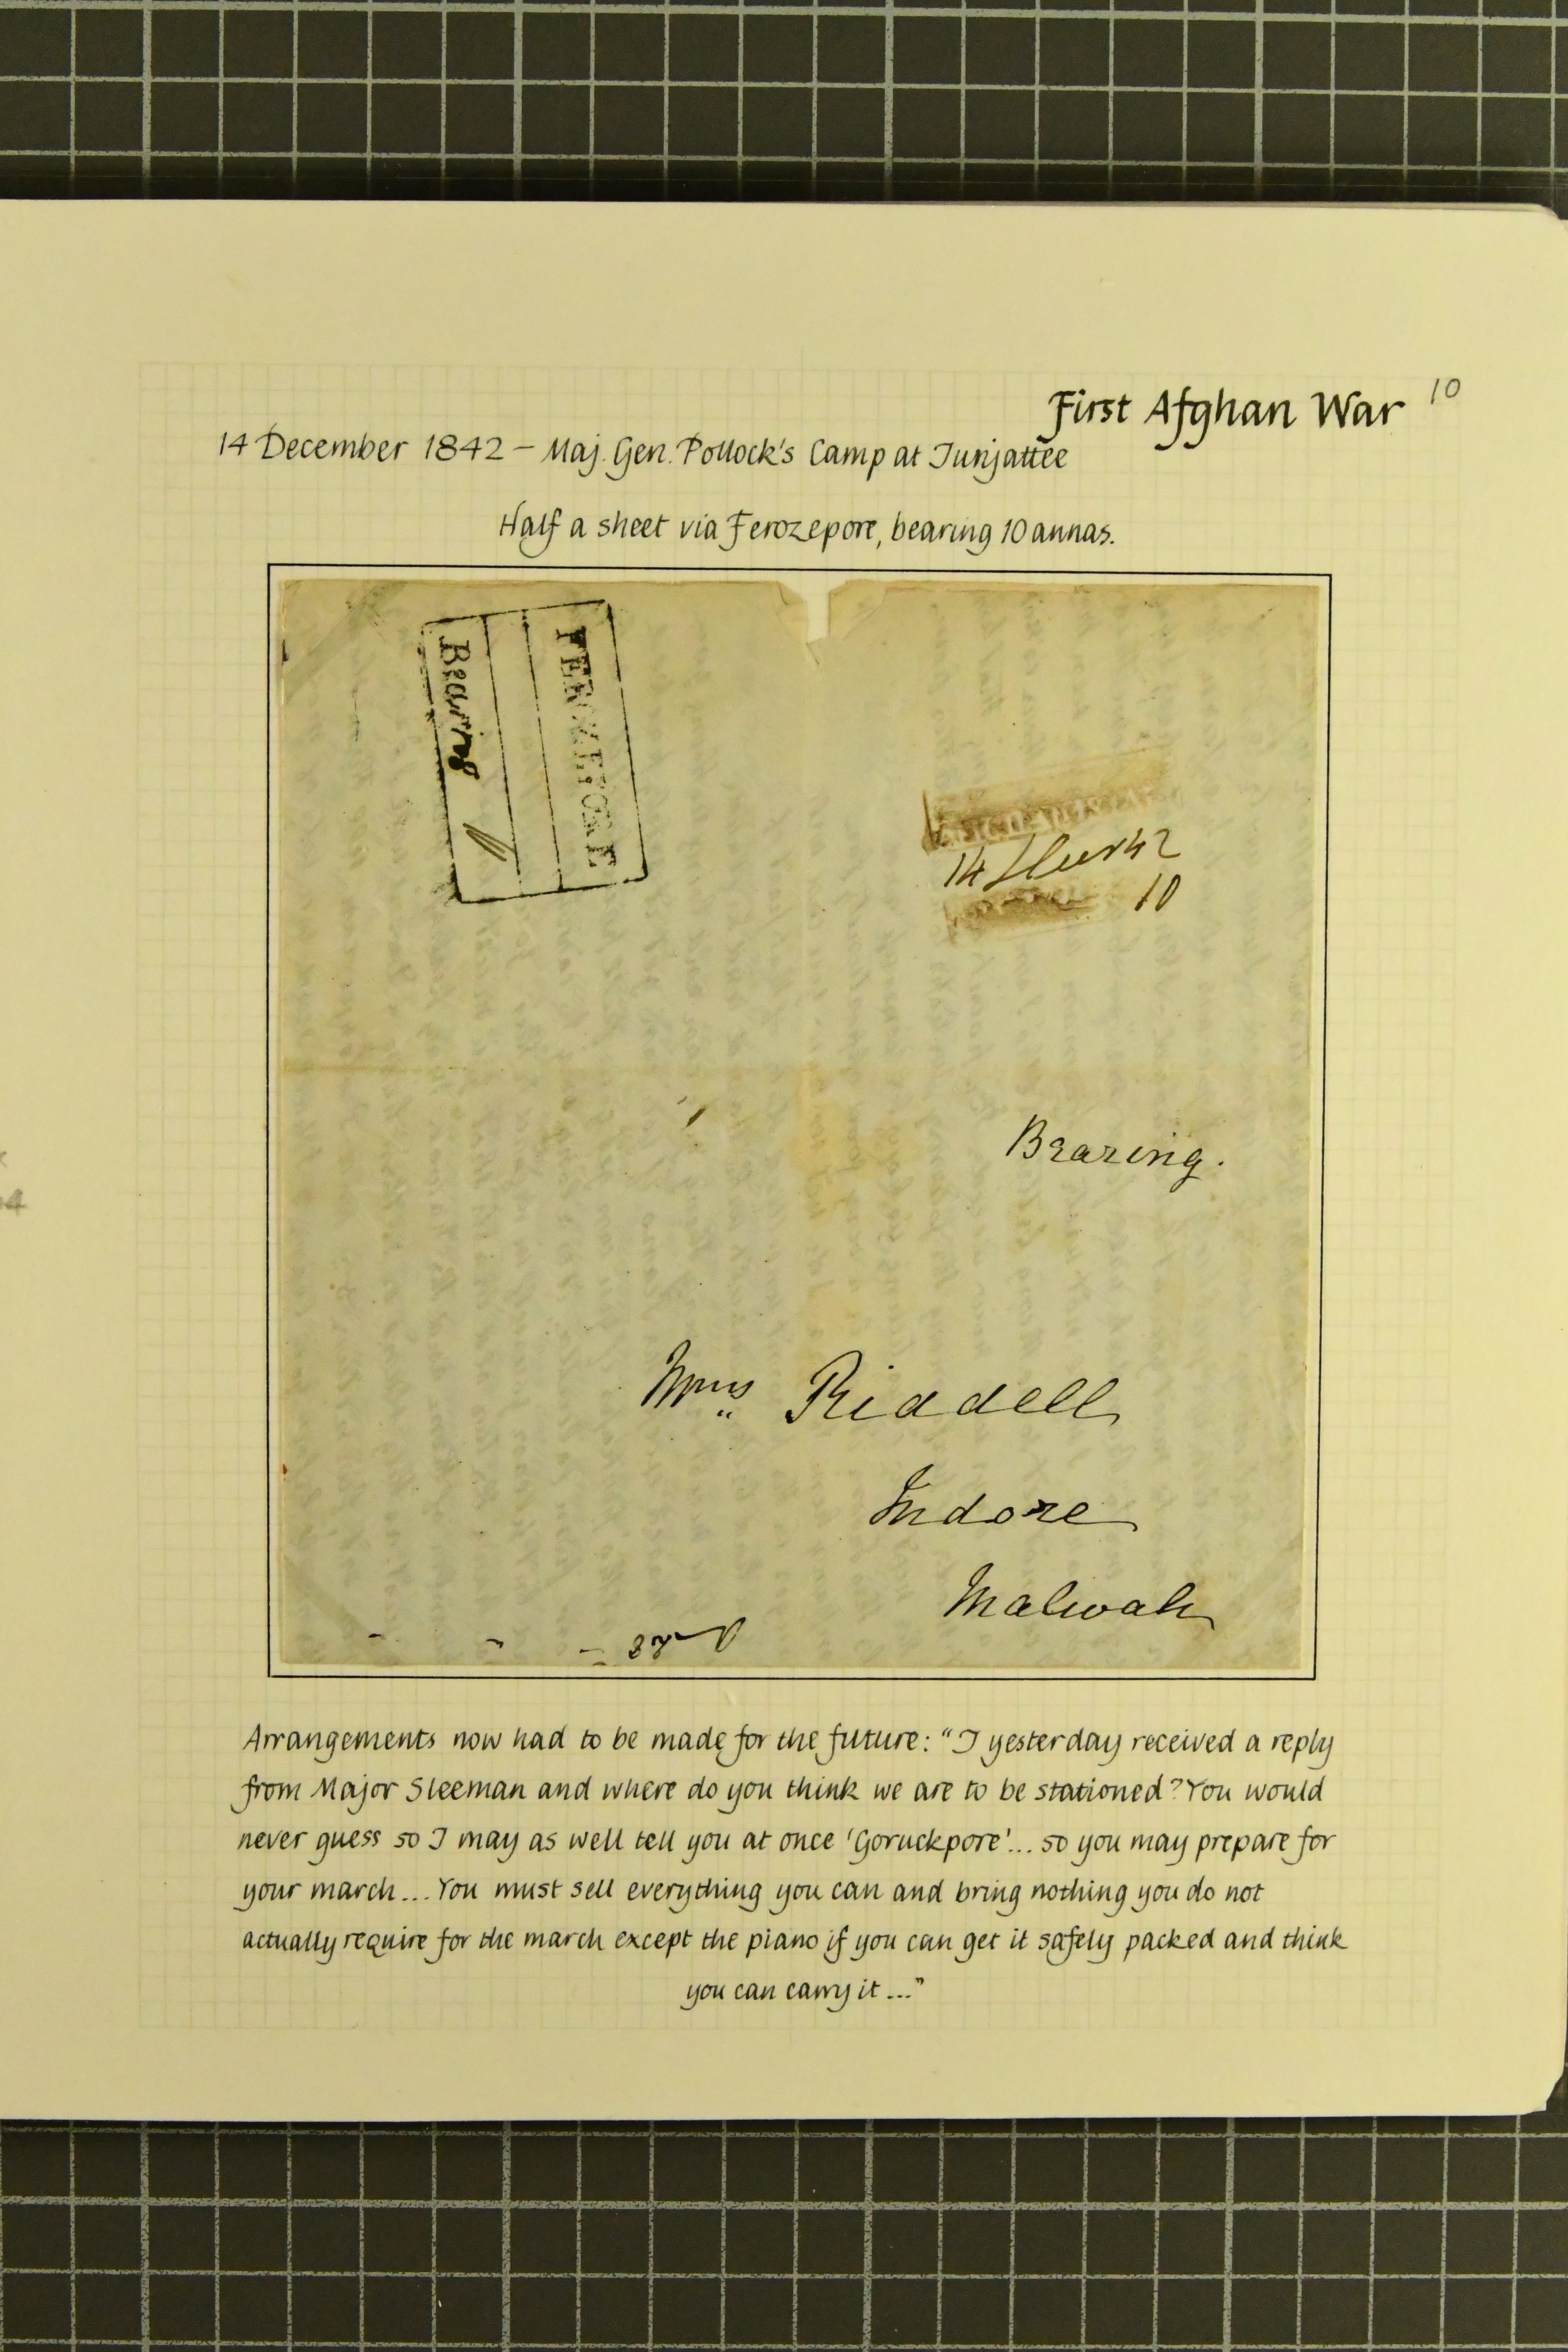 First Afghan War 10
14 December 1842 – Maj. Gen. Pollock's Camp at Tunjattee
Half a sheet via Ferozepore, bearing 10 annas.
FEROZEPORE
Bearing
14 42
10
Bearing.
Mrs Riddell
Indore
Malwah
Arrangements now had to be made for the future: "I yesterday received a reply
from Major Sleeman and where do you think we are to be stationed? You would
never guess so I may as well tell you at once 'Goruckpore'... so you may prepare for
your march... You must sell everything you can and bring nothing you do not
actually require for the march except the piano if you can get it safely packed and think
you can carry it..."